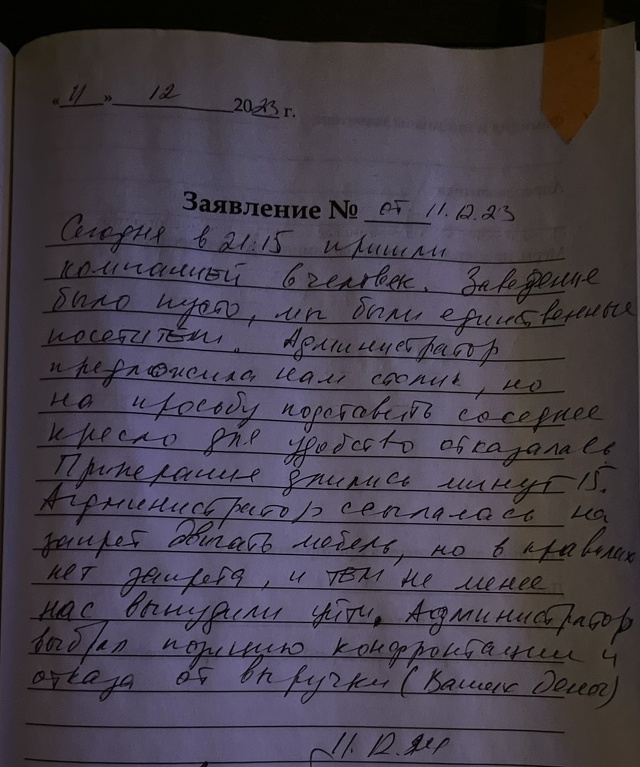 « 11 » 12 2023 г.
Заявление № от 11.12.23
Сегодня в 21:15 пришли
компанией 6 человек. Заведение
было пусто, мы были единственные
посетители. Администратор
предложила нам столик, но
на просьбу подставить соседнее
кресло для удобство отказалась.
Припирание длились минут 15.
Администратор ссылалась на
запрет двигать мебель, но в правилах
нет запрета, и тем не менее
нас вынудили уйти. Администратор
выбрал позицию конфронтации и
отказа от выручки (Ваших денег)
11.12.